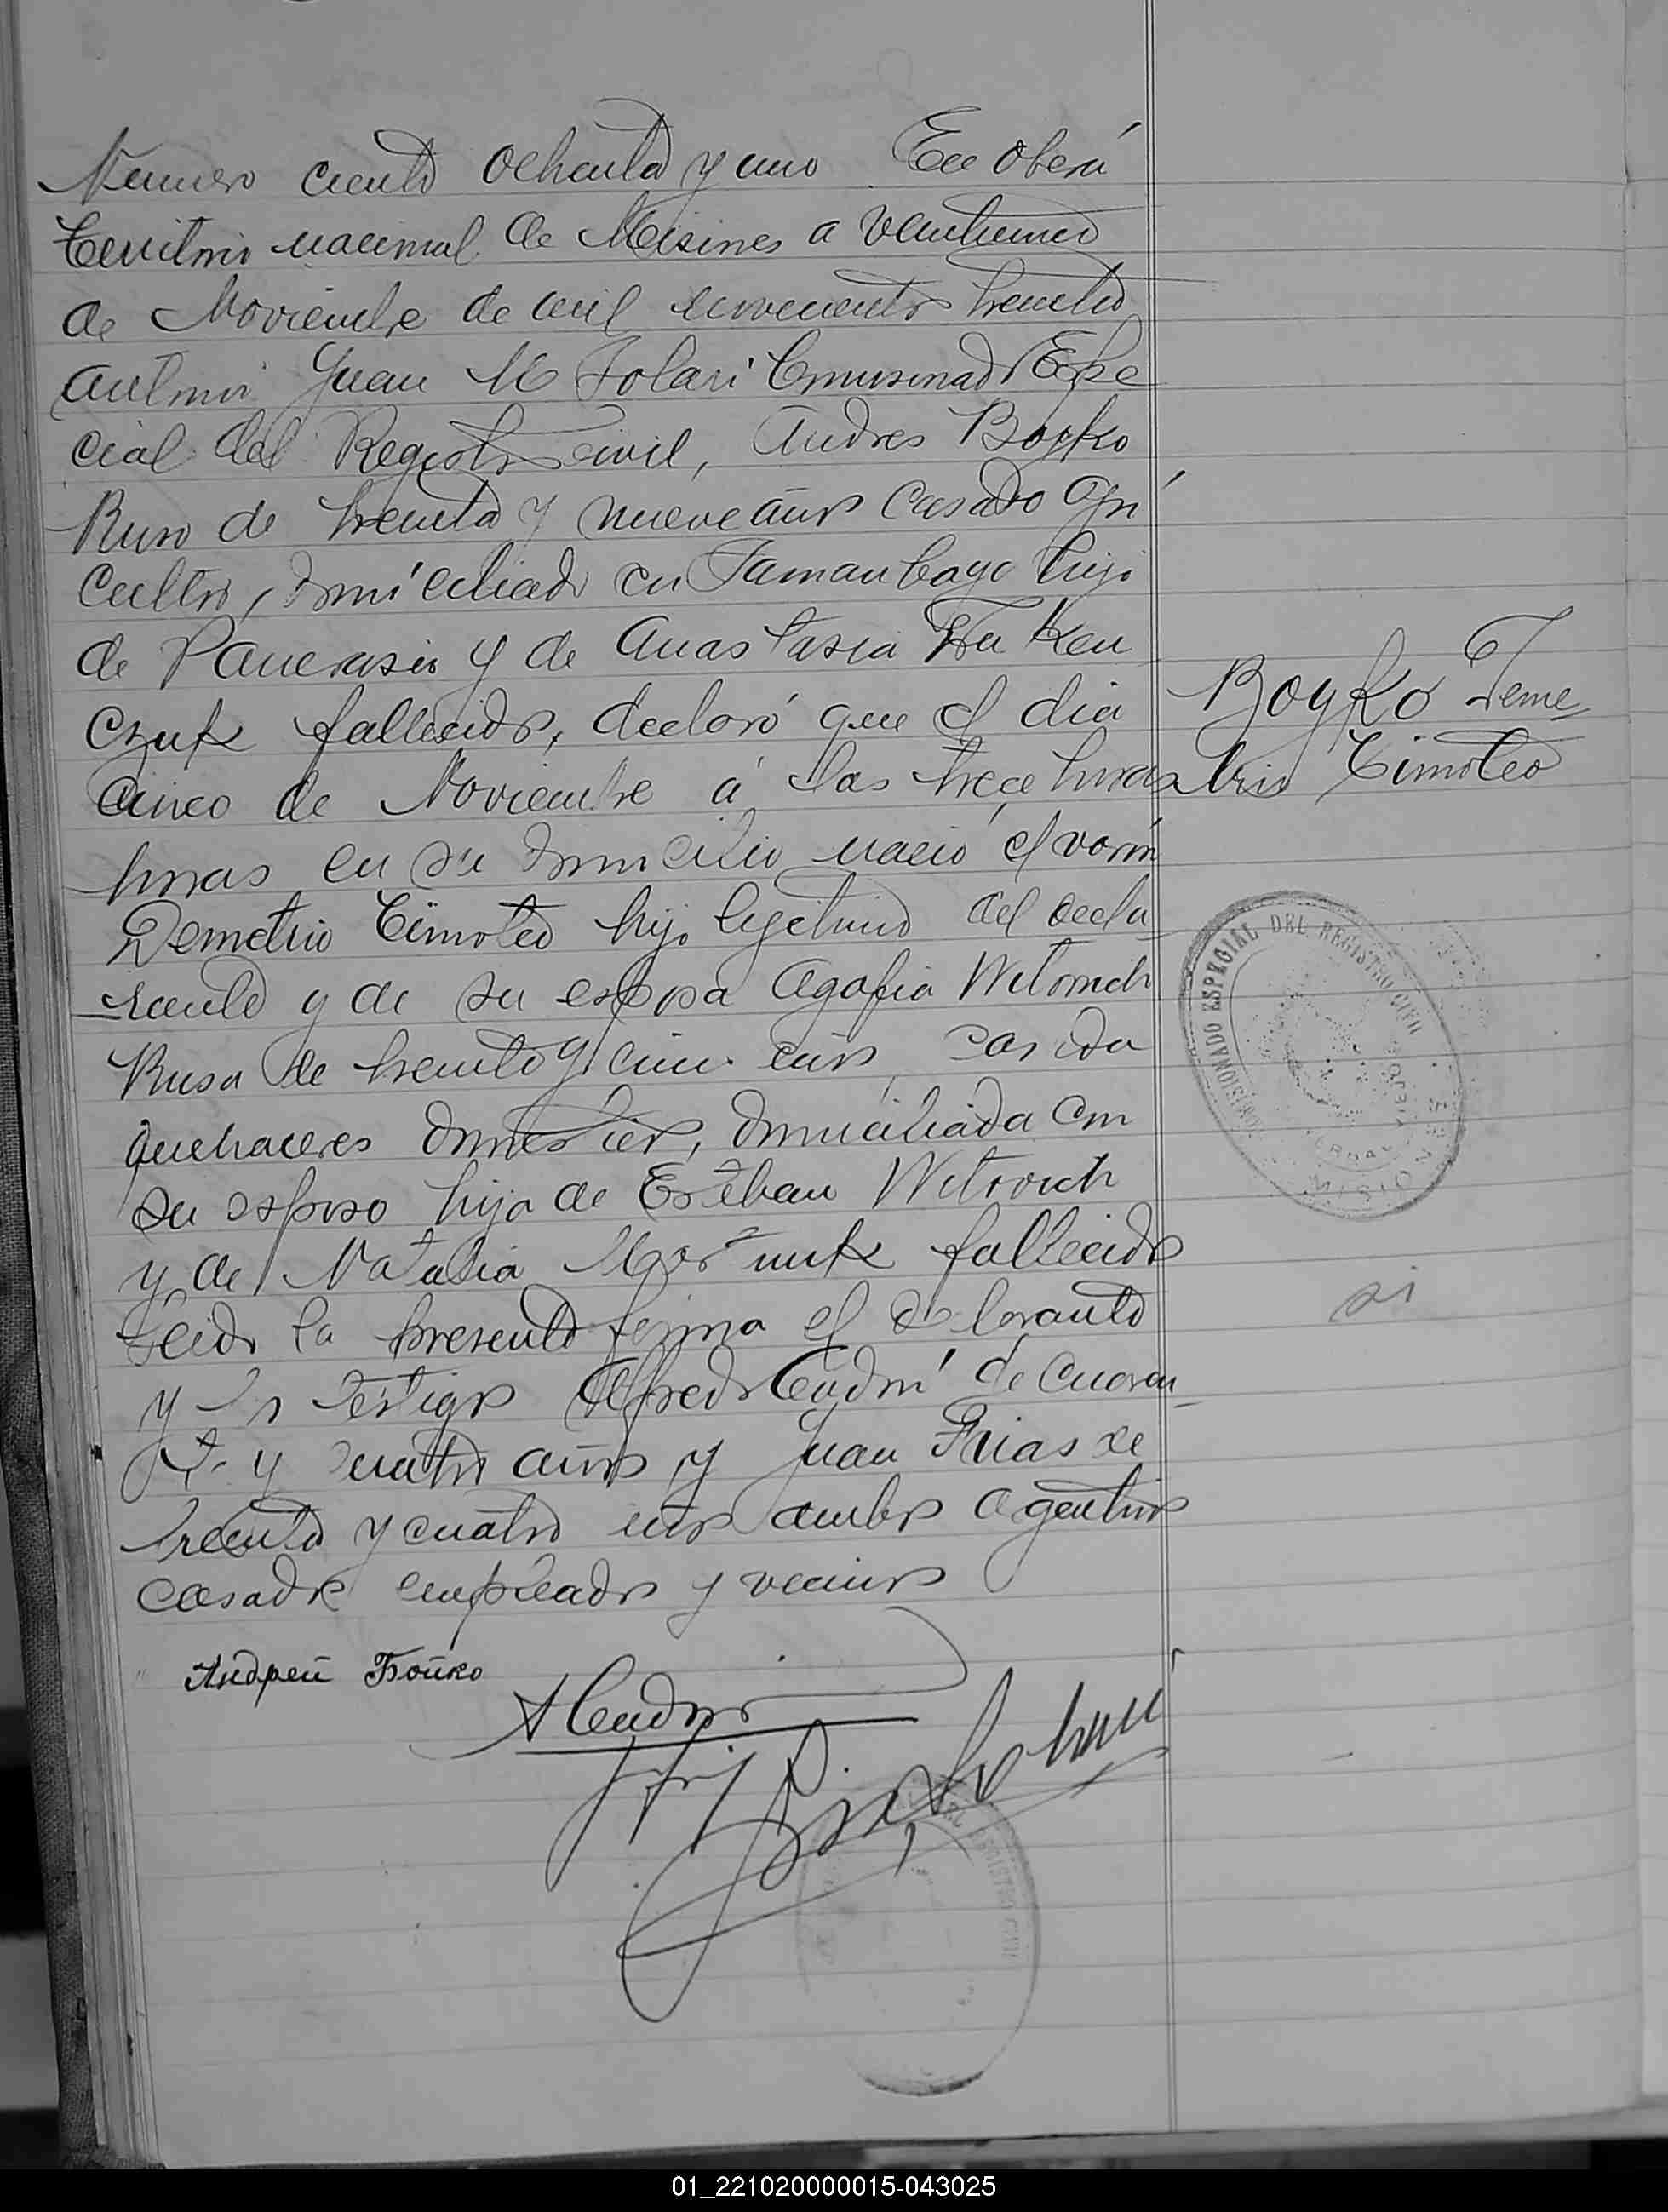 Numero ciento ochenta y uno En Oberá
Territorio nacional de Misiones a veintiuno
de Noviembre de mil novecientos treinta
ante mi Juan M Tolari Comisionado Espe
cial del Registro Civil, Andres Boyko
Ruso de treinta y nueve años casado agri
cultor, domiciliado en Tamanbayo hijo
de Pancrasio y de Anastasia
czuk fallecidos, declaró que el dia
cinco de Noviembre á las trece horas
horas en su domicilio nació el varón
Demetrio Timoteo hijo legitimo del decla
rante y de su esposa Agafia Witovich
Rusa de treinta y años, casada
quehaceres domesticos, domiciliada con
su esposo hija de Esteban Witrovich
y de Natalia fallecidos
Leida la presente firma el declarante
y los testigos Alfredo de cuaren
ta y cuatro años y Juan Frias de
treinta y cuatro años ambos argentinos
casados empleados y vecinos
Boyko Deme
trio Timoteo
COMISIONADO ESPECIAL DEL REGISTRO CIVIL
MISIONES
si
Андрей Бойко
REGISTRO CIVIL
01_221020000015-043025